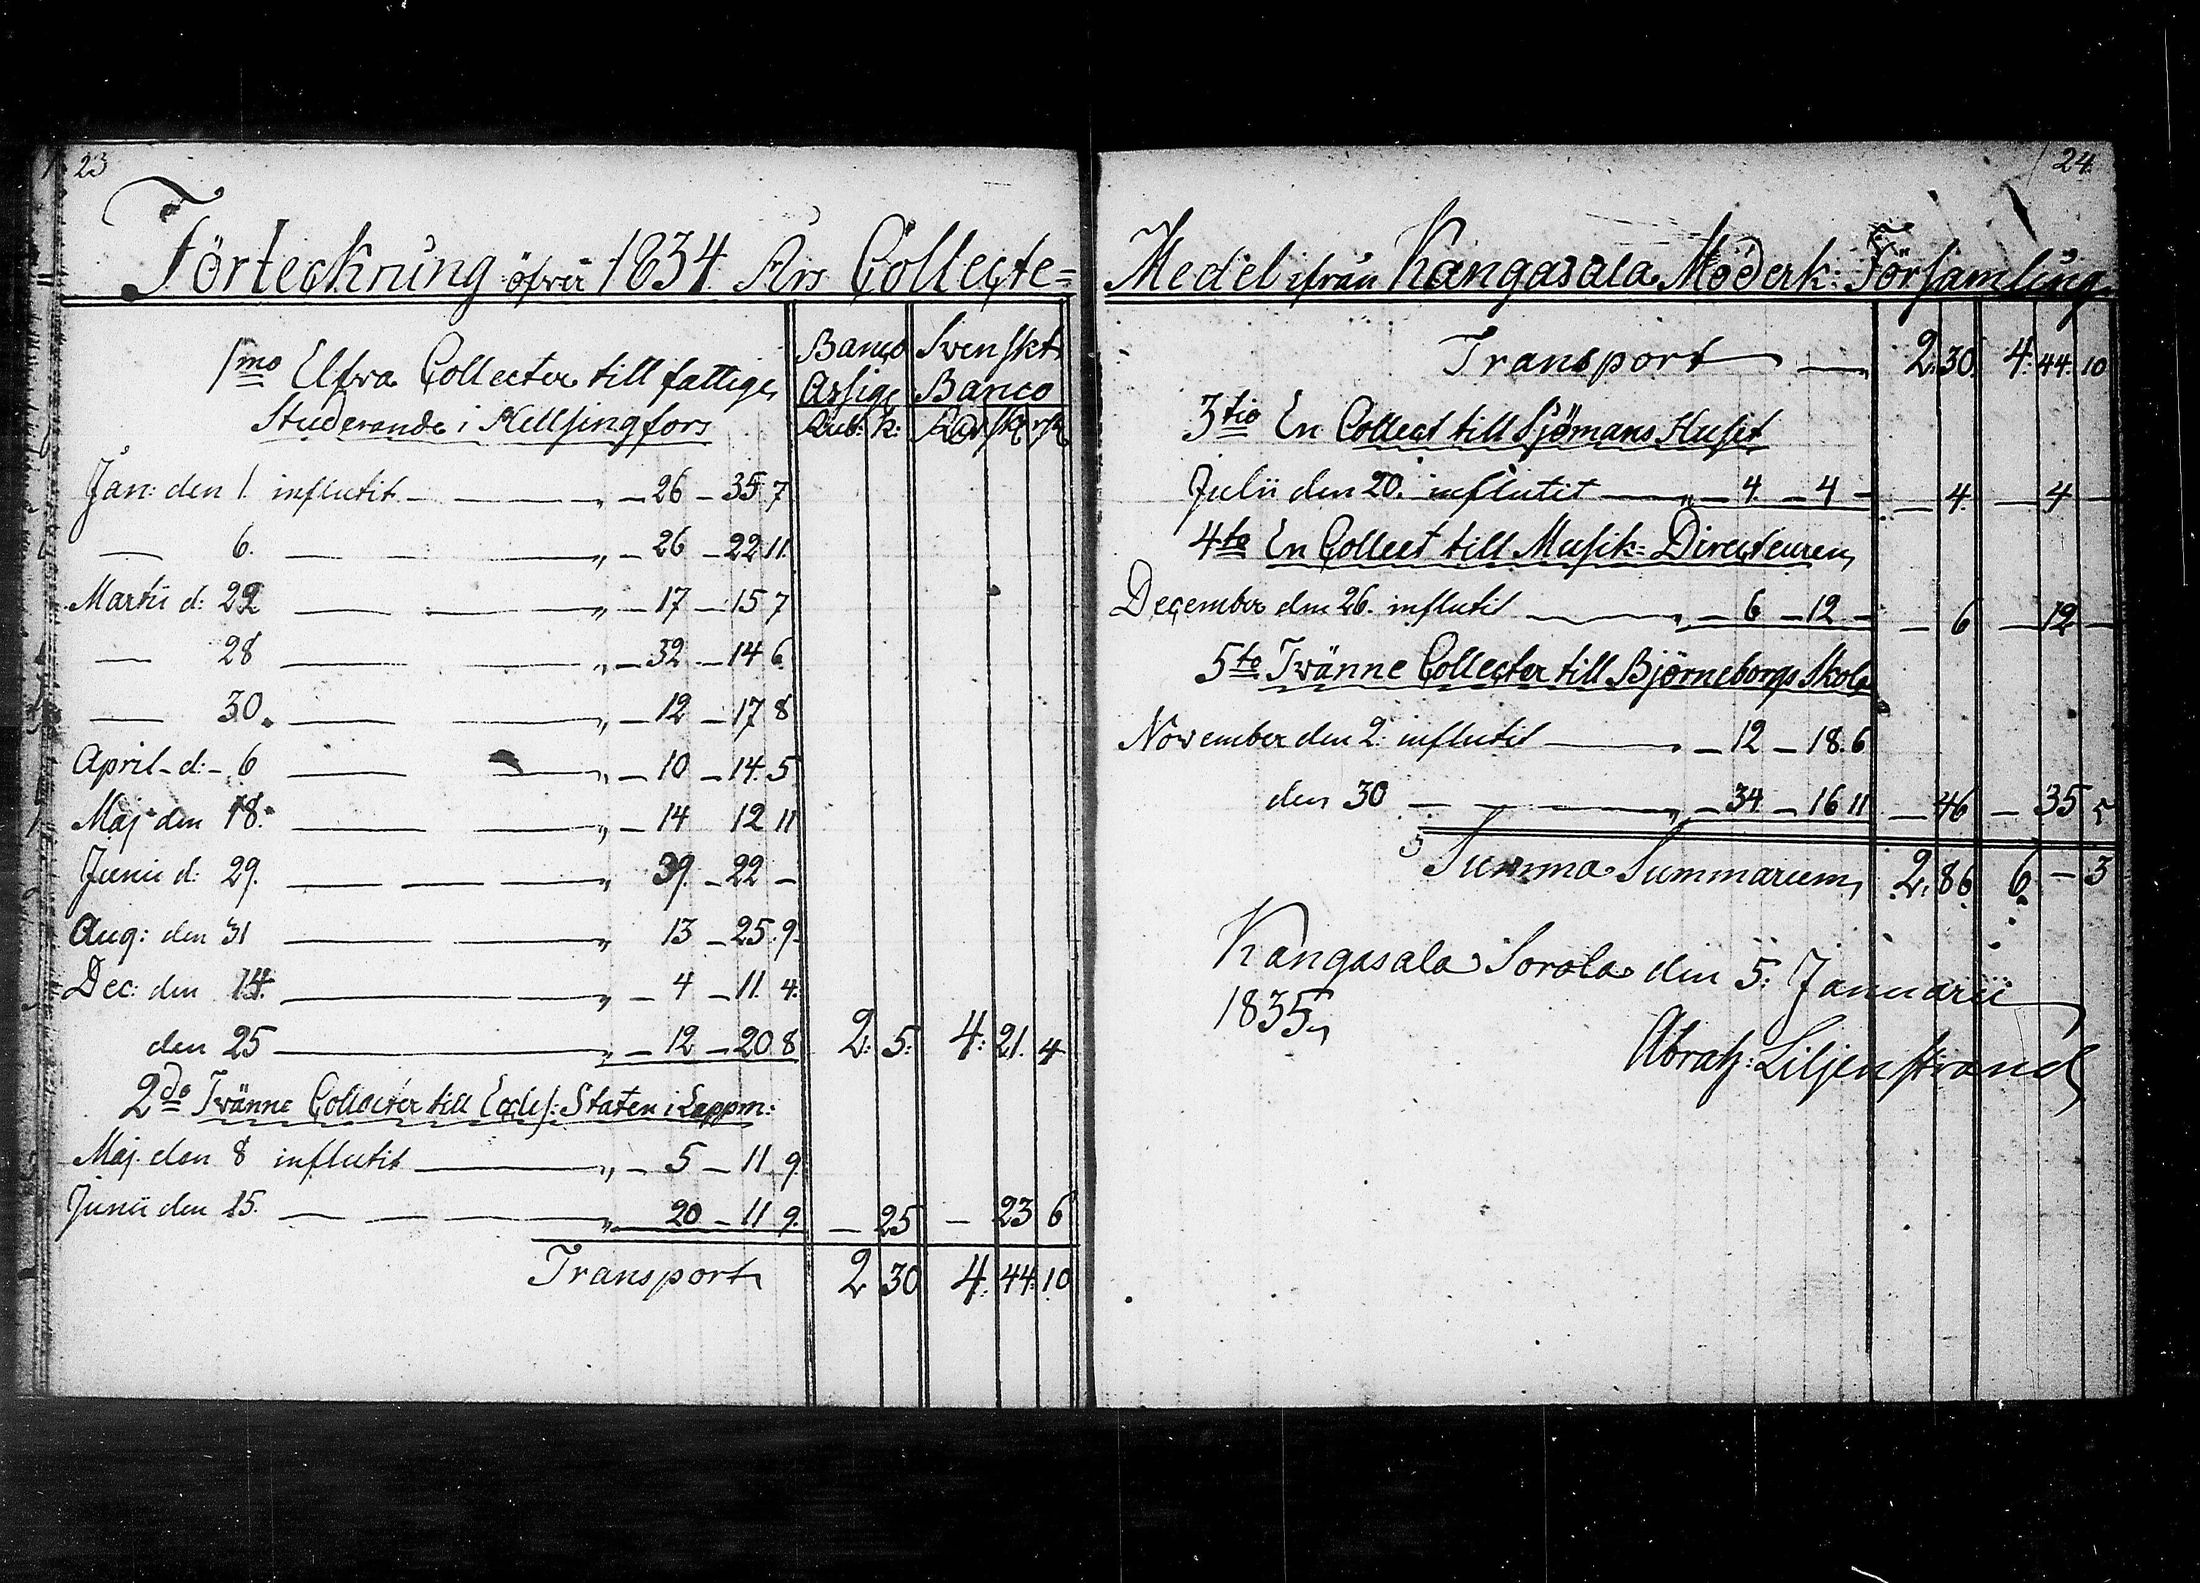 23
Förteckning öfver 1834 Års Collecte=
1mo Elfva Collecter till fattige
Studerande i Hellsingfors
Banco Svenskt
Assig: Banco
Rub: k: Rdr sk rst
Jan: den 1. influtit — „ — 26 — 35. 7
— 6. — „ — 26 — 22 11.
Martii d: 22 — „ — 17 — 15 7
— 28 — „ — 32 — 14 6.
— 30. — „ — 12 — 17 8
April — d: — 6 — „ — 10 — 14. 5
Maj den 18. — „ — 14 12 11
Junii d: 29. — „ 39. — 22 —
Aug: den 31 — „ 13 — 25. 9.
Dec: den 14. — „ — 4 — 11. 4.
den 25 — „ — 12 — 20. 8 2: 5: 4: 21. 4
2do Tvänne Collecter till Eccles: Staten i Lappm:
Maj. den 8 influtit — „ — 5 — 11. 9.
Junii den 15. — „ 20 — 11 9. — 25 — 23 6
Transport 2 30 4. 44. 10
24
Medel ifrån Kangasala Moderk: Församling
Transport — 2. 30. 4. 44. 10
3tio En Collect till Sjömans Huset
Julii den 20. influtit — „ — 4. — 4 — — 4. — 4 —
4to En Collect till Musik= Directeuren
December den 26. influtit — „ — 6 — 12 — — 6 — 12 —
5to Tvänne Collecter till Björneborgs Skola
November den 2. influtit — „ — 12 — 18. 6
den 30 — „ — 34 — 16 11 — 46 — 35 5
Summa Summarum 2. 86 6. — 3
Kangasala Sorola den 5. Januarii
1835.
Abrah: Liljenstrand